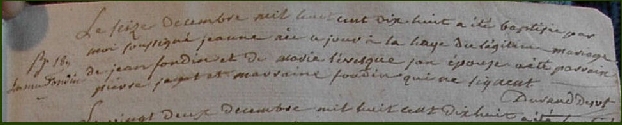 Le seize decembre mil huit cent dix huit a été baptisée par
moi soussigné jeanne née ce jour à la haye du légitime mariage
de jean fondin et de marie levesque son épouse a été parrain
pierre et marraine fondin qui ne signent
Durand
Le vingt deux decembre mil huit cent dix huit a été